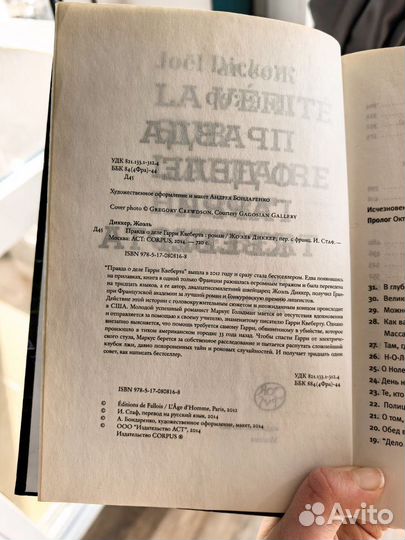 УДК 821.133.1-312.4
ББК 84(4Фра)-44
Д45
Художественное оформление и макет Андрея Бондаренко
Cover photo © Gregory Crewdson, Courtesy Gagosian Gallery
Диккер, Жоэль
Д45 Правда о деле Гарри Квеберта : роман / Жоэль Диккер; пер. с франц. И. Стаф. —
Москва: АСТ: CORPUS, 2014. — 720 с.
ISBN 978-5-17-080816-8
"Правда о деле Гарри Квеберта" вышла в 2012 году и сразу стала бестселлером. Едва появившись
на прилавках, книга в одной только Франции разошлась огромным тиражом и была переведена
на тридцать языков, а ее автор, двадцатисемилетний швейцарец Жоэль Диккер, получил Гран-
при Французской академии за лучший роман и Гонкуровскую премию лицеистов.
Действие этой истории с головокружительным сюжетом и неожиданным концом происходит
в США. Молодой успешный романист Маркус Гольдман мается от отсутствия вдохновения
и отправляется за помощью к своему учителю, знаменитому писателю Гарри Квеберту. Однако
внезапно выясняется, что помощь требуется самому Гарри, обвиненному в убийстве, которое
произошло в тихом американском городке 33 года назад. Чтобы спасти Гарри от электриче-
ского стула, Маркус берется за собственное расследование и пытается распутать сложнейший
клубок лжи, давно похороненных тайн и роковых случайностей. И получает тридцать один
совет, как написать бестселлер.
УДК 821.133.1-312.4
ББК 84(4Фра)-44
ISBN 978-5-17-080816-8
© Éditions de Fallois / L'Âge d'Homme, Paris, 2012
© И. Стаф, перевод на русский язык, 2014
© А. Бондаренко, художественное оформление, макет, 2014
© ООО "Издательство АСТ", 2014
Издательство CORPUS ®
Исчезновен
Пролог Окт
31. В глуб
30. Велик
29. Можн
28. Как ва
Масса
27. Там, г
26. Н-О-Л
25. О Ноле
24. День
23. Те, кт
22. Полиц
21. О том,
20. Обед в
19. "Дело
Avito